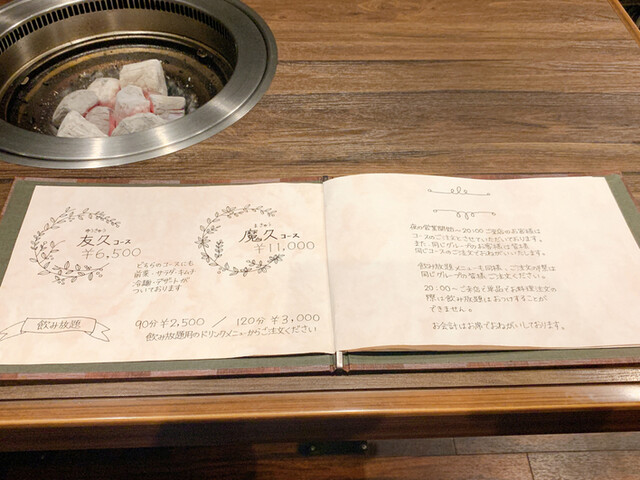 ゆうきゅう
友久コース
¥6,500
どちらのコースにも
前菜・サラダ・キムチ
冷麺・デザートが
ついております
まきゅう
魔久コース
¥11,000
飲み放題
90分 ¥2,500 / 120分 ¥3,000
飲み放題用のドリンクメニューからご注文ください
夜の営業開始〜20:00ご来店のお客様は
コースのご注文とさせていただいております。
また、同じグループのお客様は皆様
同じコースのご注文でおねがいします。
飲み放題メニューも同様、ご注文の際は
同じグループの皆様ご注文ください。
20:00〜ご来店で単品でお料理注文の
際は飲み放題はおつけすることが
できません。
お会計はお席でおねがいしております。